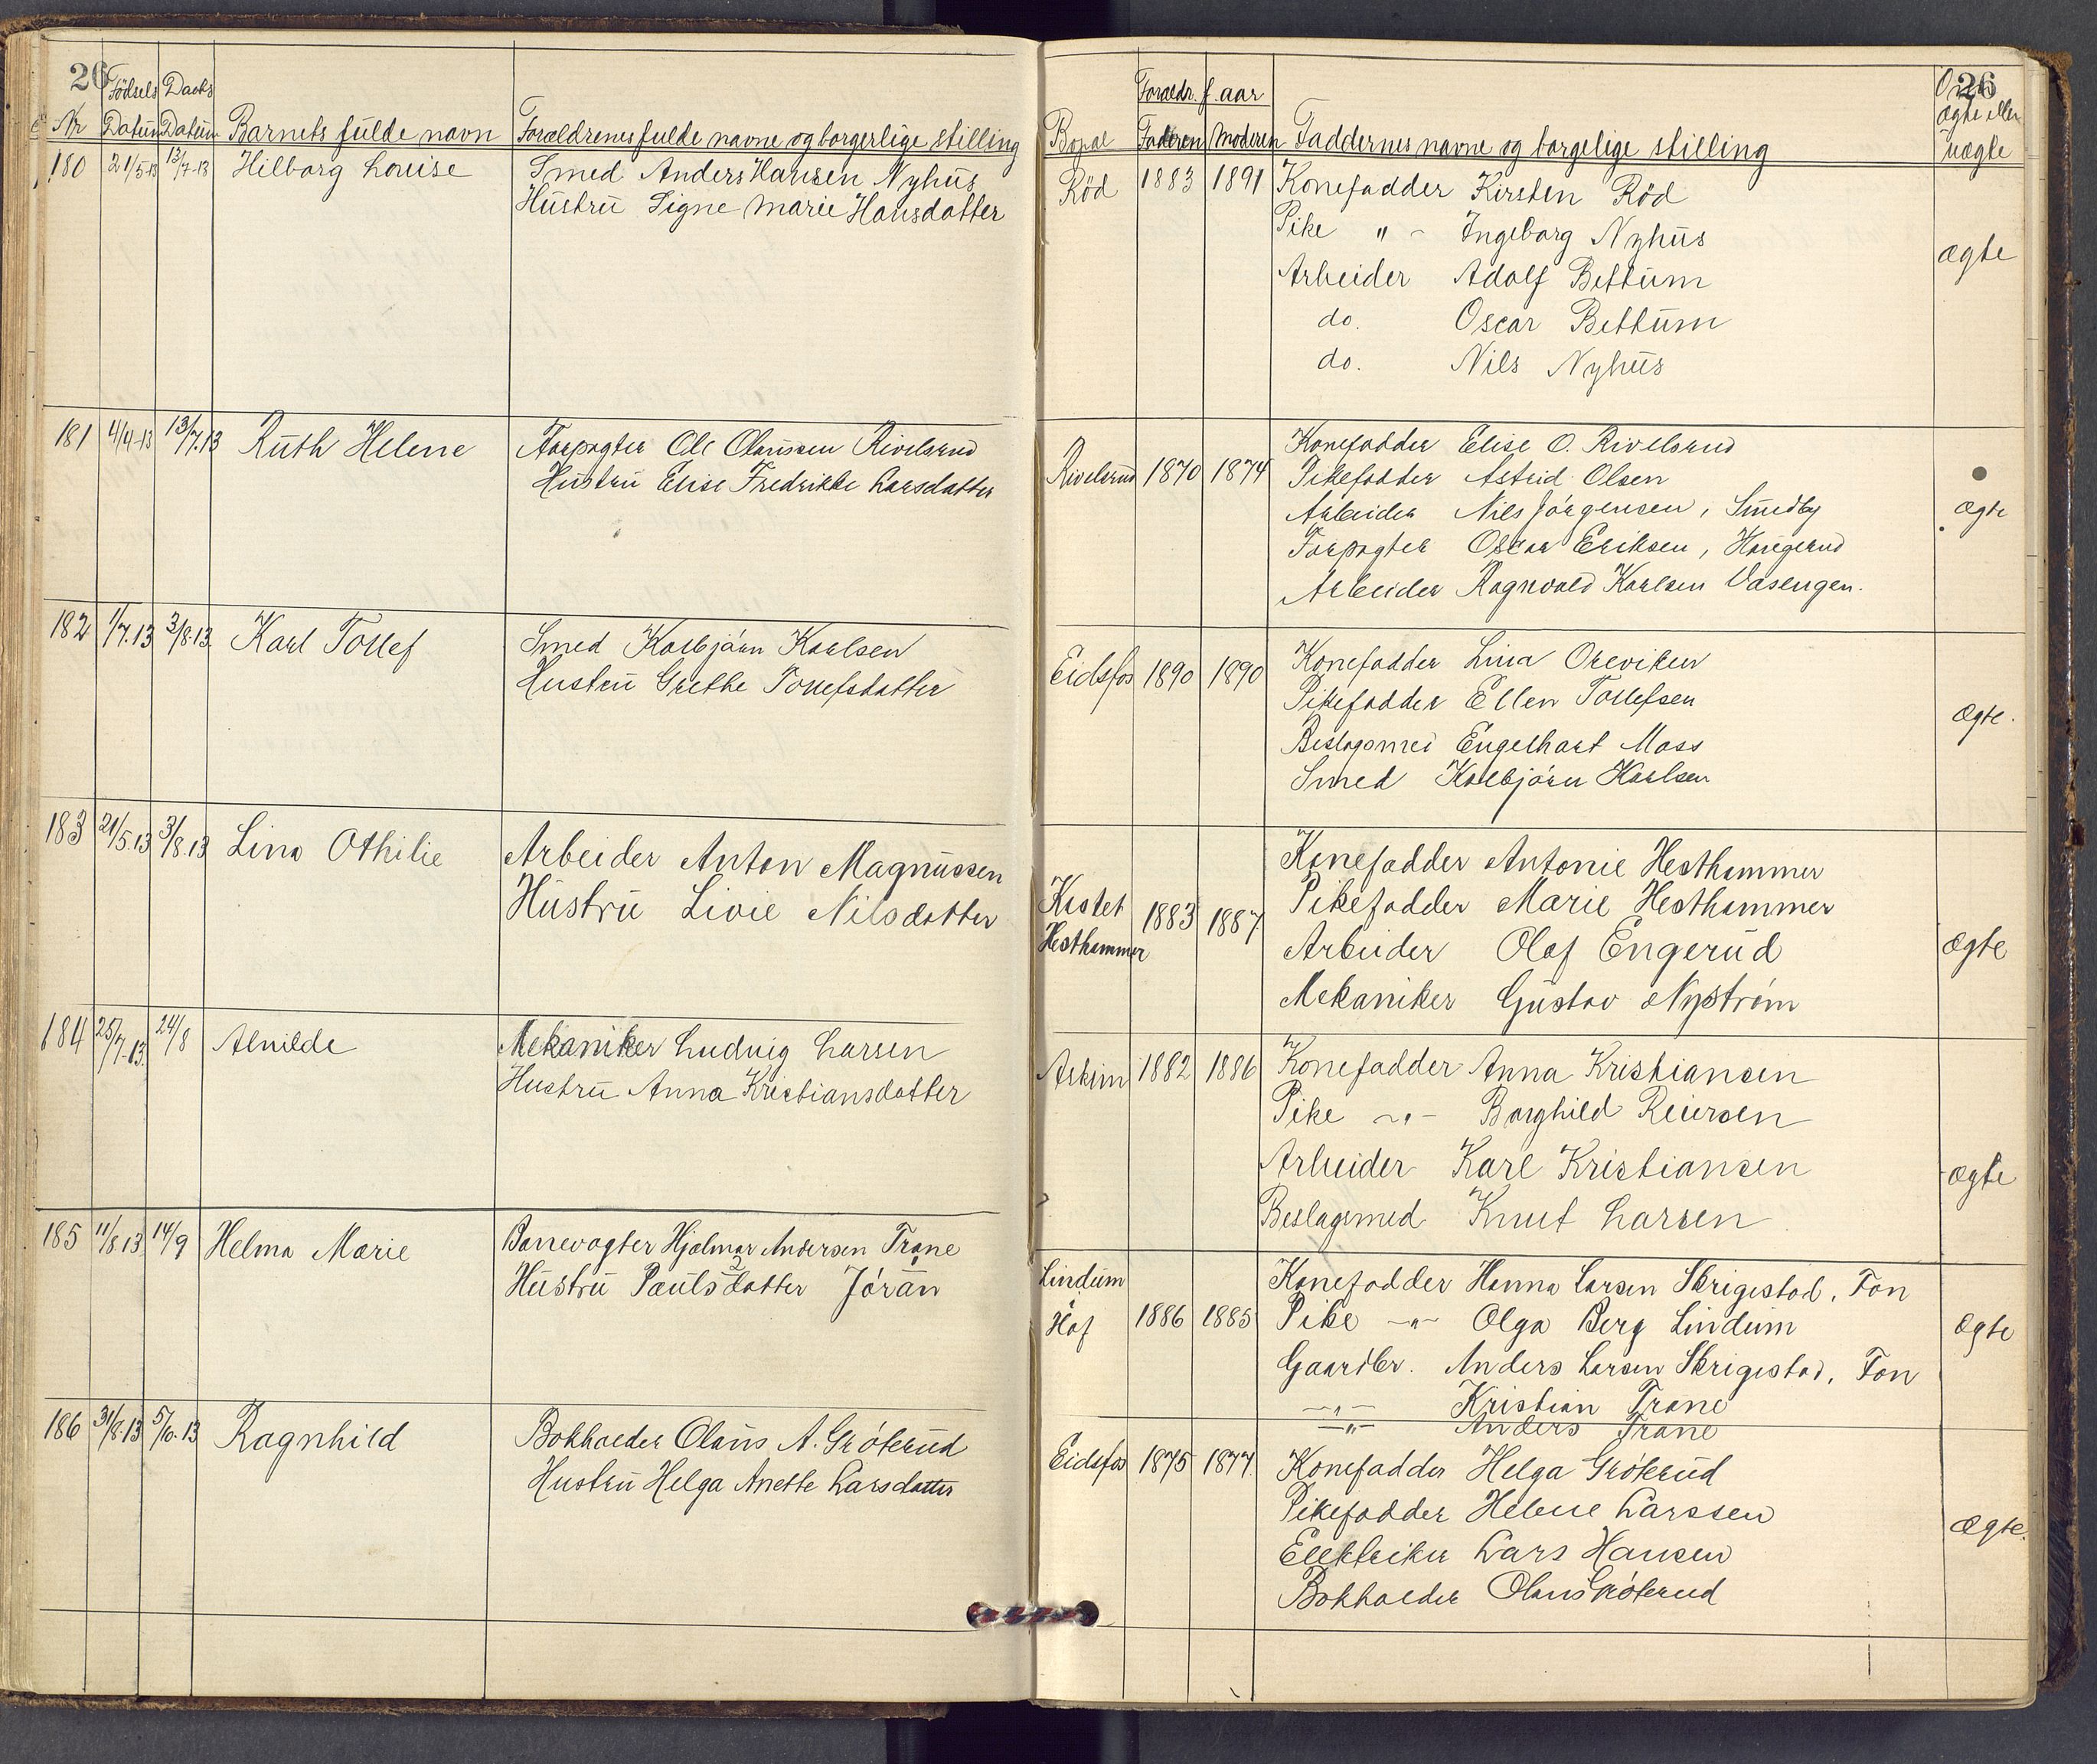 26
Födsels Daabs
Nr Datum Datum Barnets fulde navn Forældrenes fulde navne og borgerlige stilling
180 21/5-13 13/7-13 Hilborg Louise Smed Anders Hansen Nyhus
Hustru Signe Marie Hansdatter
181 4/4-13 13/7.13 Ruth Helene Forpagter Ole Olaussen Rivelsrud
Hustru Elise Fredrikke Larsdatter
182 1/7.13 3/8.13. Karl Tollef Smed Kolbjörn Karlsen
Hustru Grethe Tollefsdatter
183 21/5.13 3/8.13 Lina Othilie Arbeider Anton Magnussen
Hustru Livie Nilsdatter
184 25/7-13. 24/8 Alvilde Mekaniker Ludvig Larsen
Hustru Anna Kristiansdatter
185 11/8.13. 14/9 Helma Marie Banevogter Hjalmar Andersen Trane
Hustru Paulsdatter Jörån
186 31/8.13 5/10.13 Ragnhild Bokholder Olaus A. Gröterud
Hustru Helga Anette Larsdatter
26
Foraldr. f. aar Om
ægte eller
Bopæl Faderen Moderen Faddernes navne og borgelige stilling uægte
Röd 1883 1891 Konefadder Kirsten Röd
Pike " - Ingeborg Nyhus
ægte
Arbeider Adolf Bettum
do. Oscar Bettum
do. Nils Nyhus
Konefadder Elise O. Rivelsrud
Rivelsrud 1870 1874 Pikefadder Astrid Olsen
Arbeider Nils Jörgensen, Smedby ægte
Forpagter Oscar Eriksen, Haugerud
Arbeider Ragnvald Karlsen Vasengen.
Eidsfos 1890 1890 Konefadder Lina Oreviken
Pikefadder Ellen Tollefsen
ægte.
Engelhart Moss
Smed Kolbjörn Karlsen
Konefadder Antonie Hesthammer
Kastet 1883 1887. Pikefadder Marie Hesthammer
Hesthammer Arbeider Olaf Engerud ægte
Mekaniker Gustav Nyström
Askim 1882 1886 Konefadder Anna Kristiansen
Pike -"- Borghild Reiersen
Arbeider Karl Kristiansen ægte
Beslagsmed Knut Larsen
Lindum Konefadder Hanna Larsen Skrigestad, Fon
Hof 1886 1885 Pike -"- Olga Berg Lindum ægte
Gaardbr. Anders Larsen Skrigestad, Fon
-"- Kristian Trane
-"- Anders Trane
Eidsfos 1875 1877. Konefadder Helga Gröterud
Pikefadder Helene Larssen
Elektriker Lars Hansen ægte.
Bokholder Olaus Gröterud